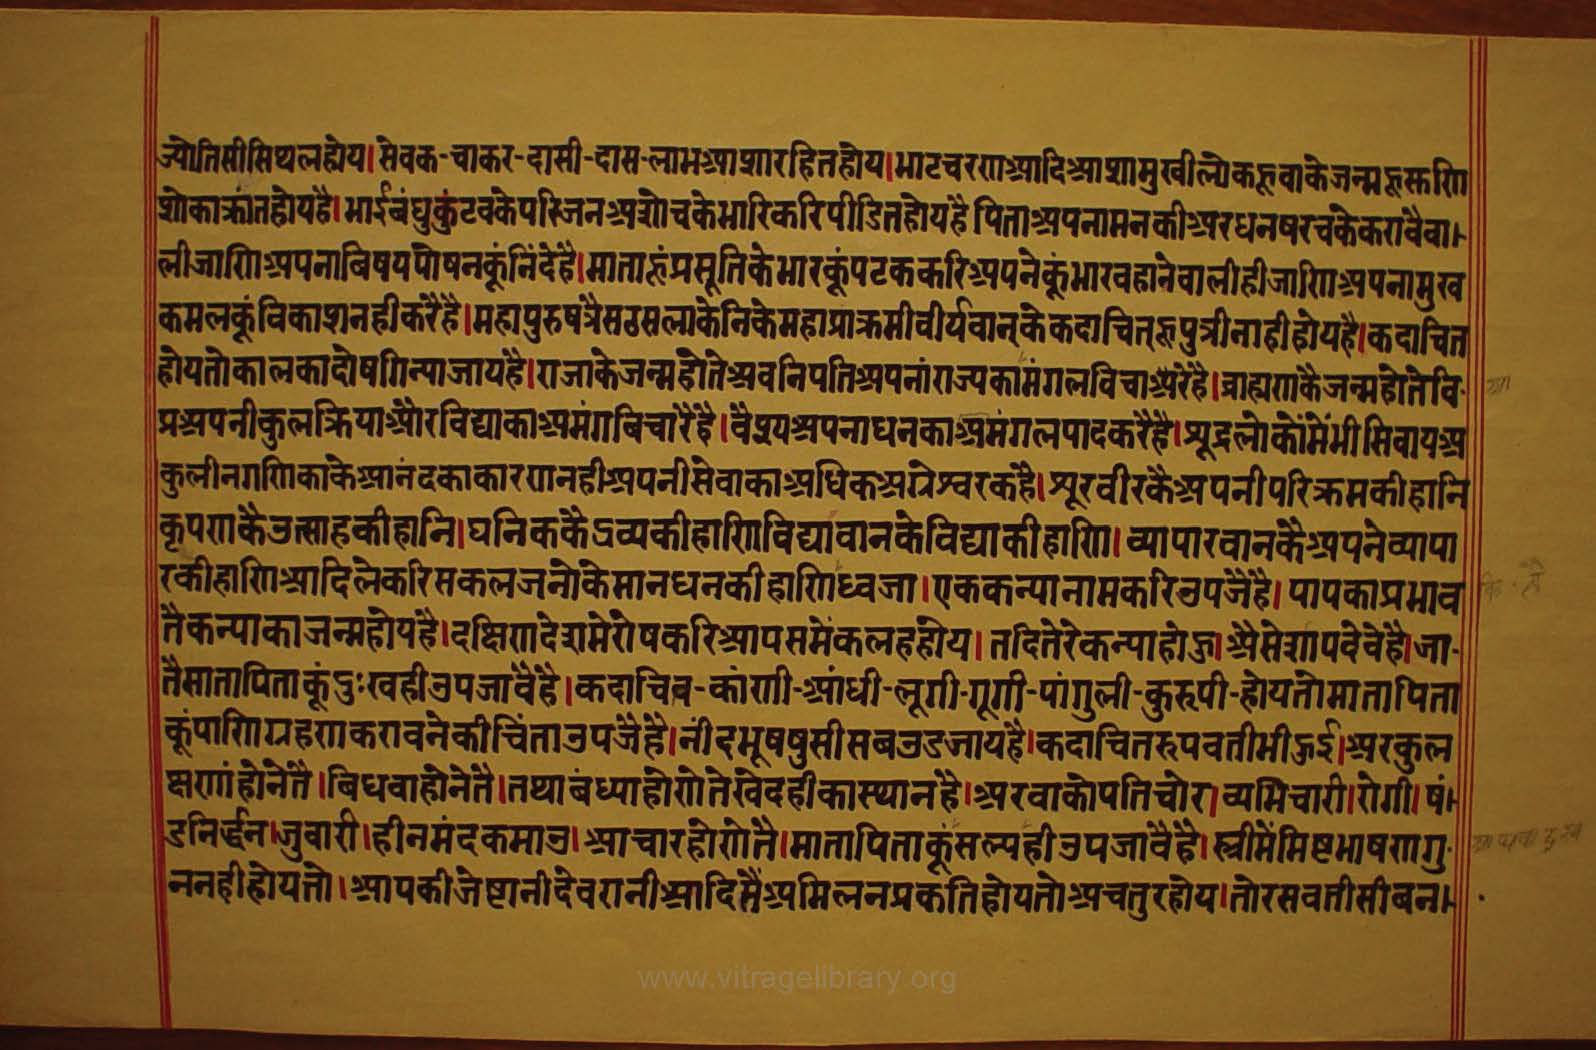 ज्योतिसीसिथलहोय।सेवक-चाकर-दासी-दास-लाभआशारहितहोय।भाटचरणआदिआशामुखीलोकहूवाकेजन्महू
शोकाक्रांतहोयहै।भाईबंधुकुंटबकेपरिजनअशोचकेभारिकरिपीडितहोयहै पिताअपनामनकीअरधनषरचकेकरांवैवा।-
लीजाणिअपनाबिषयपोषनकूंनिंदेहै।माताहूंप्रसूतिकेभारकूंपटककरिअपनेकूंभारवहानेवालीहीजाणिअपनामुख
कमलकूंविकाशनहीकरैहै।महापुरुषत्रैसठसलाकेनिकेमहाप्राक्रमीवीर्यवान्केकदाचित्हूपुत्रीनाहीहोयहै।कदाचित
होयतोकालकादोषगिन्याजायहै।राजाकेजन्महोतेअवनिपतिअपनांराज्यकामंगलविचारैहै।ब्राह्मणकैजन्महोतेवि-
प्रअपनीकुलक्रियाऔरविद्याकाअमंगबिचारैहै।वैश्यअपनाधनकाअमंगलपादकरैहै।शूद्रलोकोंमेंभीसिवायअ
कुलीनगणिकाकेआनंदकाकारणनहीअपनीसेवाकाअधिकअग्रेश्वरकहै।शूरवीरकैअपनीपरिक्रमकीहानि
कृपणकैउत्साहकीहानि।धनिककैद्रव्यकीहाणिविद्यावानकेविद्याकीहाणि।व्यापारवानकैअपनेव्यापा
रकीहाणिआदिलेकरिसकलजनोकेमानधनकीहाणिध्वजा।एककन्यानामकरिउपजैहै।पापकाप्रभाव
तैकन्याकाजन्महोयहै।दक्षिणदेशमेरोषकरिआपसमेंकलहहोय।तदितेरेकन्याहोउ।औसेशापवेवेहै।जा-
तैसातापिताकूंदुःखहीउपजावैहै।कदाचिब-कांणी-आंधी-लूगी-गूगी-पांगुली-कुरूपी-होयतोमातापिता
कूंपाणिग्रहणकरावनेकीचिंताउपजैहै।नींदभूषषुसीसबउडजायहै।कदाचितरुपवतीभीहुई।अरकुल
क्षणांहोनेतै।बिधवाहोनेतै।तथाबंध्याहोणेतेखेदहीकास्थानहै।अरवाकोपतिचोर।व्यभिचारी।रोगी।षं।-
डनिर्द्धन।जुवारी।हीनमंदकमाउ।आचारहोणेतै।मातापिताकूंसल्यहीउपजावैहै।स्त्रीमेंमिष्टभाषणगु-
ननहीहोयतो।आपकीजेष्टानीदेवरानीआदिसैंअमिलनप्रकतिहोयतोअचतुरहोय।तोरसवतीसीबन।-
www.vitragelibrary.org